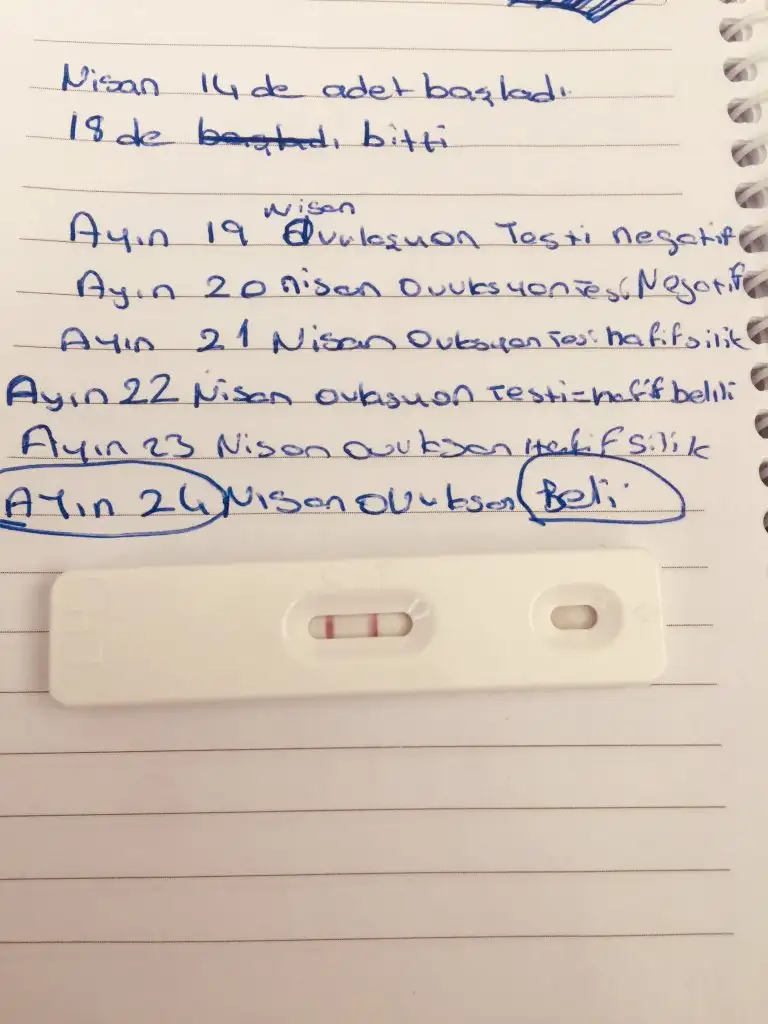 Nisan 14 de adet başladı.
18 de başladı bitti
Nisan
Ayın 19 Ovulasyon Testi negatif
Ayın 20 nisan Ovuksyon Test Negatif
Ayın 21 Nisan Ovuksyon Test hafif silik
Ayın 22 Nisan ovlasyon Testi=hafif belili
Ayın 23 Nison ovuksen Hafif silik
AYın 24 Nison OVukson Beli